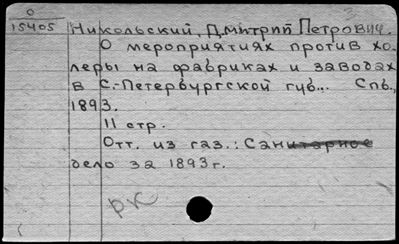 О
15405 Никольский, Дмитрий Петрович.
О мероприятиях против хо-
леры на фабриках и заводах
в С.-Петербургской губ... Спб.,
1893.
11 стр.
Отт. из газ.: Санитарное
дело за 1893 г.
рк